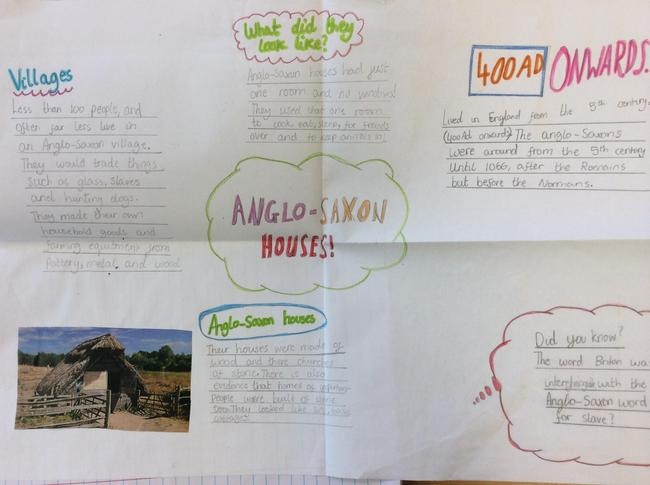 Villages
Less than 100 people, and
often far less live in
an Anglo-Saxon village.
They would trade things
such as glass, slaves
and hunting dogs.
They made their own
household goods and
farming equitment from
Pottery, metal and wood
What did they
look like?
Anglo-Saxon houses had just
one room and no windows!
They used that one room
to cook, eat, sleep, for friends
over and to keep animals in!
400AD ONWARDS!
Lived in England from the 5th century.
(400Ad onwards) The anglo-Saxons
were around from the 5th century
Until 1066, after the Romains
but before the Normains.
ANGLO-SAXON
HOUSES!
Anglo-Saxon houses
Their houses were made of
wood and there churches
of stone. There is also
evidence that homes of
People were built of stone
too. They looked like
cottages!
Did you know?
The word Briton wa
interchangable with the
Anglo-Saxon word
for slave?